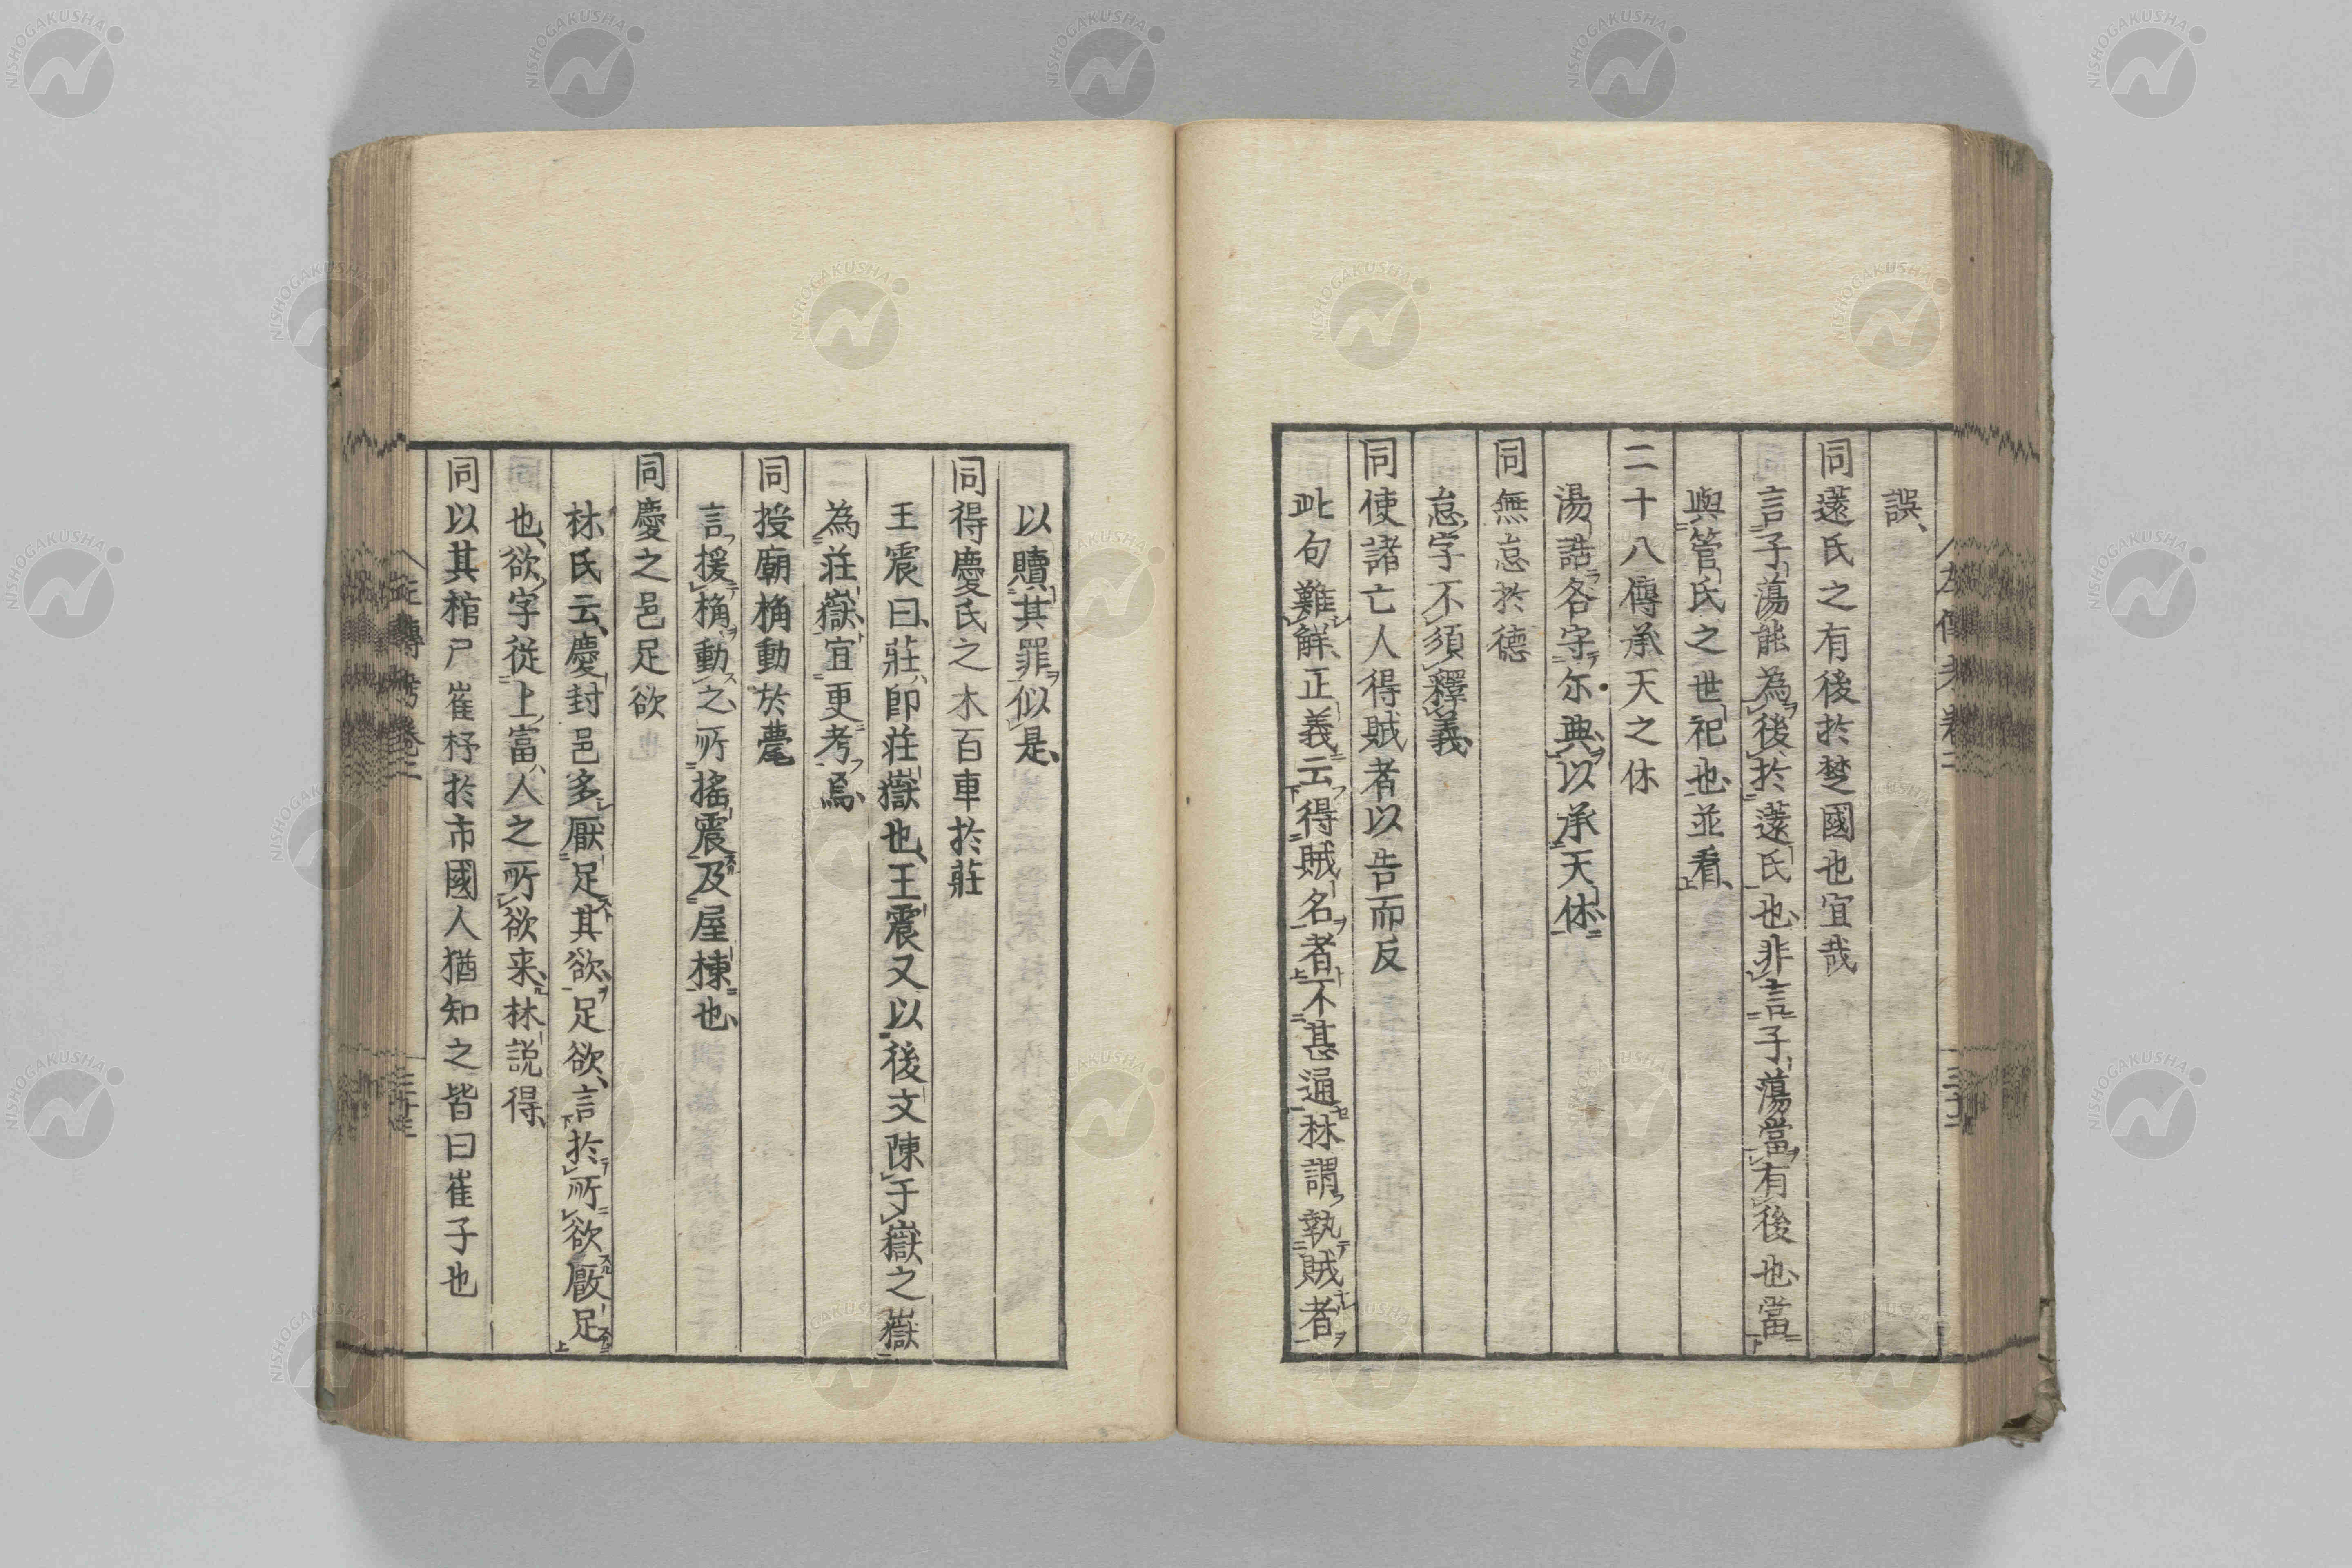 誤
同薳氏之有後於楚國也宜哉
言子蕩能為後於薳氏也非言子蕩當有後也當
與管氏之世祀也並看
二十八傳承天之休
湯誥各守尓典以承天休
同無怠於德
怠字不須釋義
同使諸亡人得賊者以告而反
此句難觧正義云得賊名者不甚通林謂執賊者
以贖其罪似是
同得慶氏之木百車於莊
王震曰莊即莊嶽也王震又以後文陳于嶽之嶽
為莊嶽宜更考焉
同援廟桷動於甍
言援桷動之所搖震及屋棟也
同慶之邑足欲
林氏云慶封邑多厭足其欲足欲言於所欲厭足
也欲字從上富人之所欲来林説得
同以其棺尸崔杼於市國人猶知之皆曰崔子也